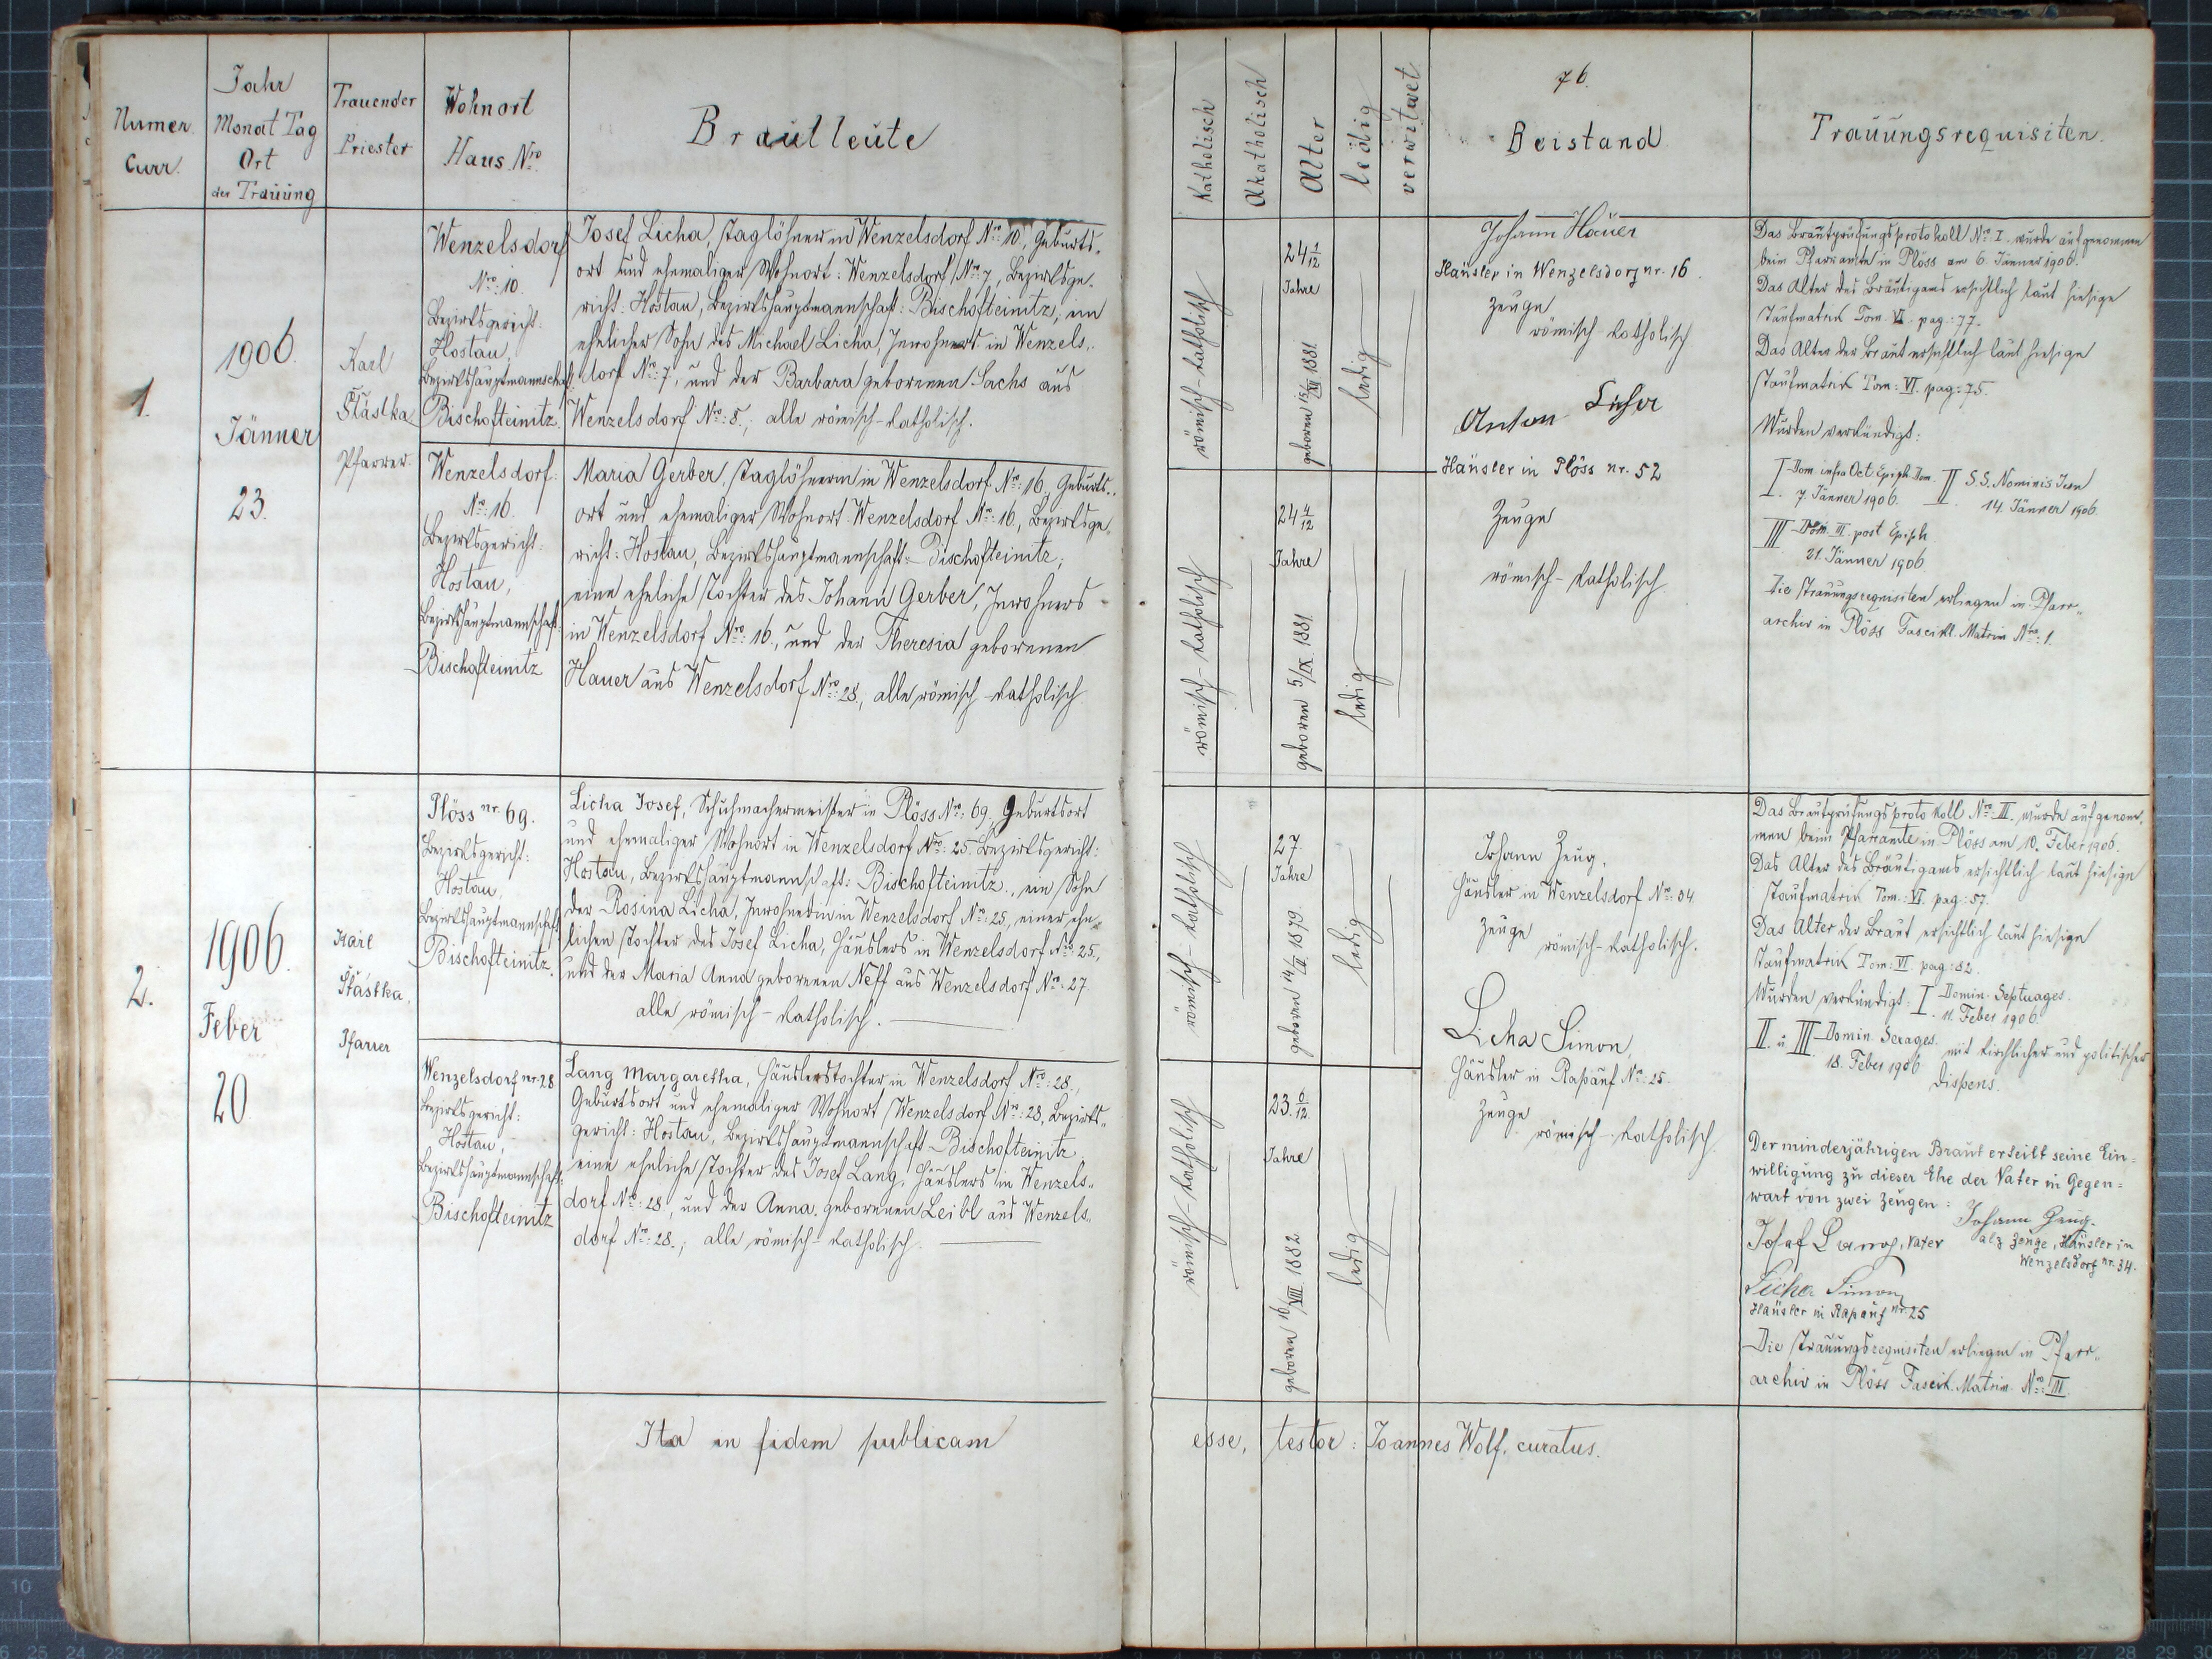 Numer.
Curr.
Jahr
Monat Tag
Ort
der Trauung
Trauender
Priester
Wohnort
Haus Nro.
Brautleute
Katholisch
Akatholisch
Alter
ledig
verwitwet
76.
Beistand
Trauungsrequisiten.
1.
1906.
Jänner
23.
Karl
Šťastka
Pfarrer.
Wenzelsdorf
Nro: 10.
Bezirksgericht
Hostau,
Bezirkshauptmannschaft
Bischofteinitz.
Josef Licha, Taglöhner in Wenzelsdorf Nro: 10., Geburts-
ort und ehemaliger Wohnort: Wenzelsdorf Nro: 7, Bezirksge-
richt: Hostau, Bezirkshauptmannschaft: Bischofteinitz; ein
ehelicher Sohn des Michael Licha, Inwohners in Wenzels-
dorf Nro: 7, und der Barbara geborenen Sachs aus
Wenzelsdorf Nro: 8.; alle römisch-katholisch.
Wenzelsdorf:
Nro: 16.
Bezirksgericht:
Hostau,
Bezirkshauptmannschaft.
Bischofteinitz
Maria Gerber, Taglöhnerin in Wenzelsdorf Nro: 16., Geburts-
ort und ehemaliger Wohnort Wenzelsdorf Nro: 16., Bezirksge-
richt: Hostau, Bezirkshauptmannschaft: Bischofteinitz;
eine eheliche Tochter des Johann Gerber, Inwohners
in Wenzelsdorf Nro: 16., und der Theresia geborenen
Hauer aus Wenzelsdorf Nro: 28.; alle römisch-katholisch
römisch-katholisch
24 1/12
Jahre
geboren 15/XII 1881.
ledig
römisch-katholisch
24 4/12
Jahre
geboren 5/IX. 1881.
ledig
Johann Hauer
Häusler in Wenzelsdorf nr. 16.
Zeuge
römisch-katholisch
Anton
Häusler in Plöss nr. 52
Zeuge
römisch-katholisch
Das Brautprüfungsprotokoll Nro I. wurde aufgenommen
beim Pfarramte in Plöss am 6. Jänner 1906.
Das Alter des Bräutigams ersichtlich laut hiesige
Taufmatrik Tom. VI. pag.: 77.
Das Alter der Braut ersichtlich laut hiesige
Taufmatrik Tom: VI. pag.: 75.
Wurden verkündigt:
I. Dom. infra Oct. Epiph. Dom. 7 Jänner 1906. II. S.S. Nominis Jesu 14. Jänner 1906.
III. Dom. III. post Epiph.
21. Jänner 1906.
Die Trauungsrequisiten erliegen in Pfarr-
archiv in Plöss Fascikl. Matrim Nro: 1.
2.
1906.
Feber
20.
Karl
Šťastka,
Pfarrer
Plöss nr. 69.
Bezirksgericht:
Hostau,
Bezirkshauptmannschaft
Bischofteinitz.
Licha Josef, Schuhmachermeister in Plöss Nro: 69, Geburtsort
und ehemaliger Wohnort in Wenzelsdorf Nro: 25 Bezirksgericht:
Hostau, Bezirkshauptmannschaft: Bischofteinitz., ein Sohn
der Rosina Licha, Inwohnerin in Wenzelsdorf Nro: 25, einer ehe-
lichen Tochter des Josef Licha, Häuslers in Wenzelsdorf Nro 25.,
und der Maria Anna geborenen Neff aus Wenzelsdorf Nro: 27.
alle römisch-katholisch.
Wenzelsdorf nr. 28
Bezirksgericht:
Hostau,
Bezirkshauptmannschaft:
Bischofteinitz
Lang Margaretha, Häuslerstochter in Wenzelsdorf Nro: 28.,
Geburtsort und ehemaliger Wohnort Wenzelsdorf Nro: 28, Bezirks-
gericht: Hostau, Bezirkshauptmannschaft Bischofteinitz
eine eheliche Tochter des Josef Lang, Häuslers in Wenzels-
dorf Nro: 28., und der Anna, geborenen Leibl aus Wenzels-
dorf Nro: 28.; alle römisch-katholisch.
römisch-katholisch
27.
Jahre
geboren 14/II. 1879.
ledig
römisch-katholisch
23. 6/12.
Jahre
geboren 16/VIII. 1882
ledig
Johann Zeug,
Häusler in Wenzelsdorf Nro: 34.
Zeuge
römisch-katholisch.
Licha Simon,
Häusler in Rapauf Nro: 25.
Zeuge
römisch-katholisch.
Das Brautprüfungsprotokoll Nro III. wurde aufgenom-
men beim Pfarramte in Plöss am 10. Feber 1906.
Das Alter des Bräutigams ersichtlich laut hiesige
Taufmatrik Tom.: VI. pag.: 57.
Das Alter der Braut ersichtlich laut hiesige
Taufmatrik Tom: VI. pag.: 82.
Wurden verkündigt: I. Domin. Septuages. 11. Feber 1906.
II. u. III. Domin. Sexages. 18. Feber 1906 mit kirchlicher und politischer
Dispens.
Der minderjährigen Braut erteilt seine Ein=
willigung zu dieser Ehe der Vater in Gegen=
wart von zwei Zeugen:
Johann Zeug.
Josef Lang, Vater
alz Zeuge, Häusler in
Wenzelsdorf nr. 34.
Licha Simon,
Häusler in Rapauf nr. 25
Die Trauungsrequisiten erliegen in Pfarr-
archiv in Plöss Fascik. Matrim. Nro: III.
Ita in fidem publicam esse, testor: Joannes Wolf, curatus.